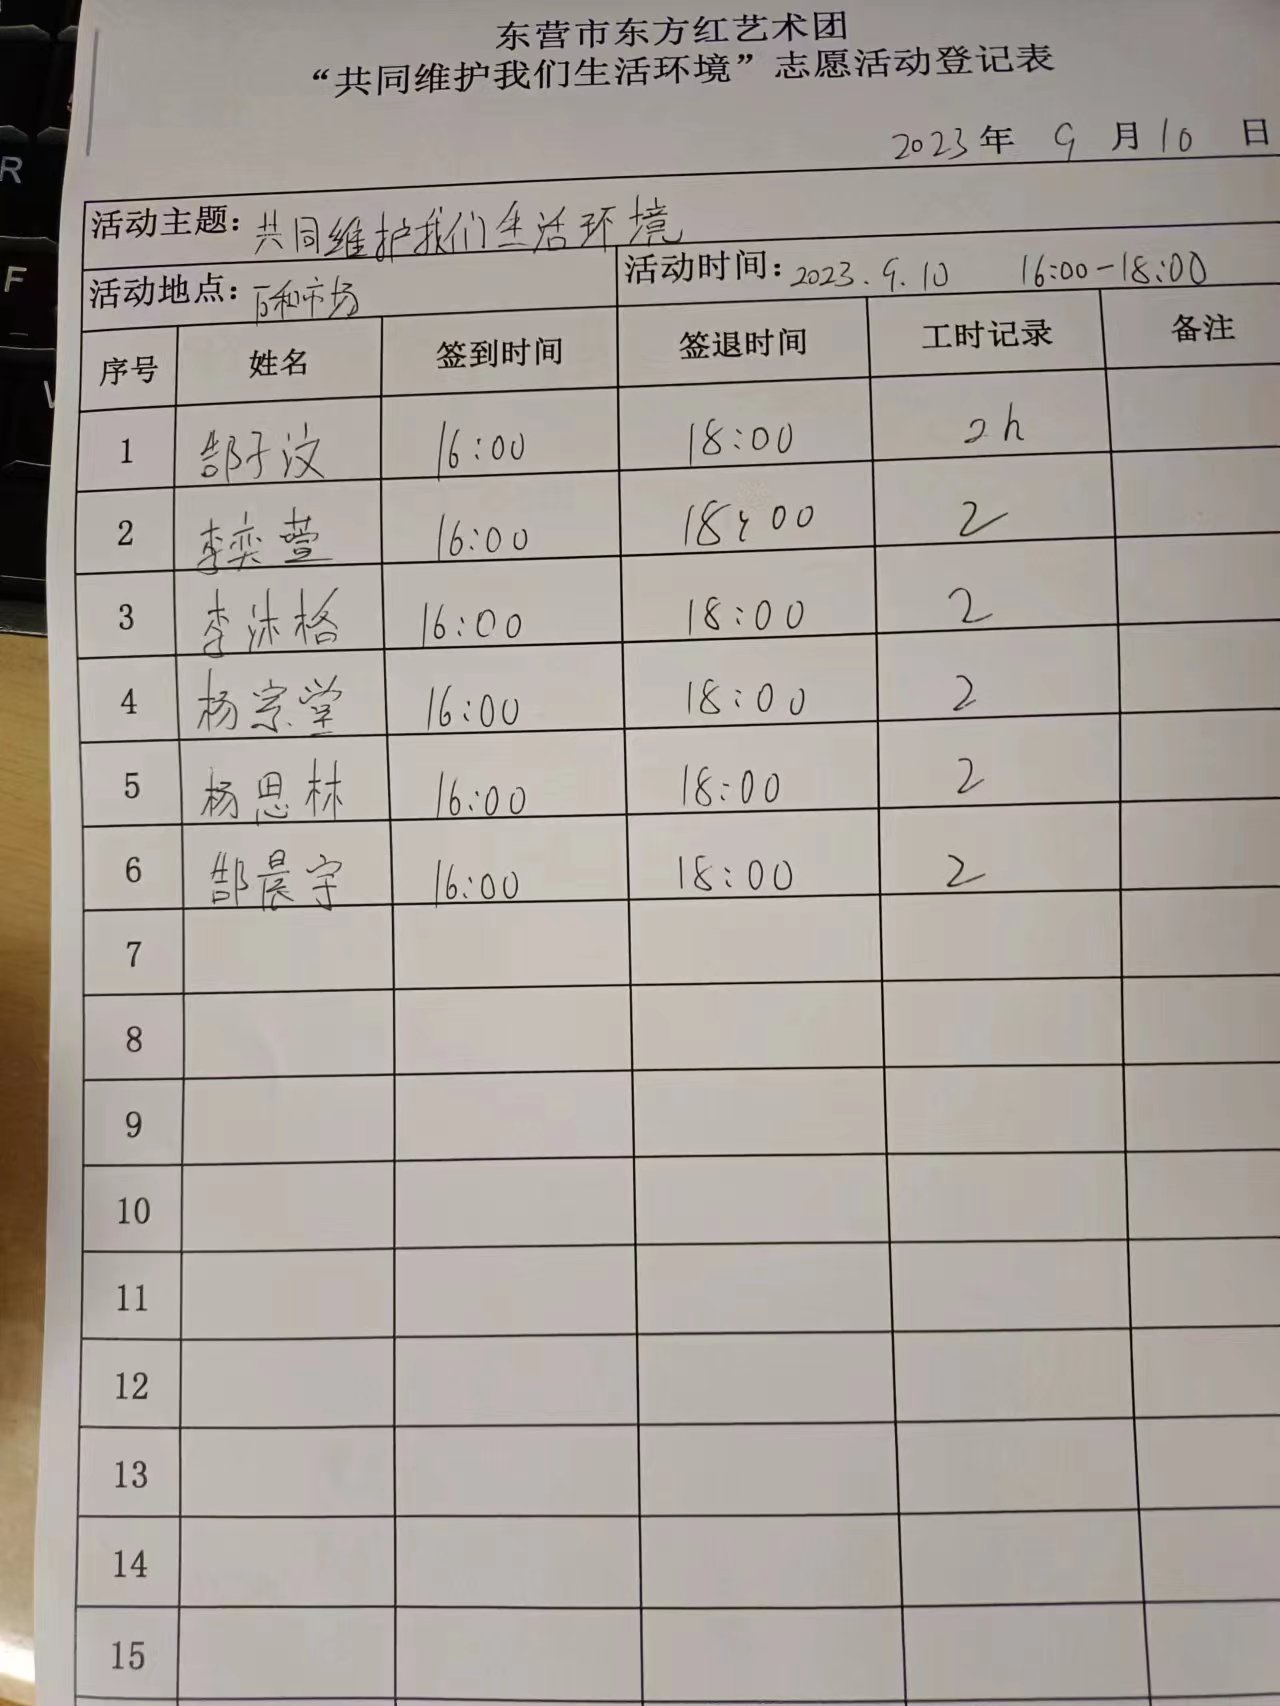 东营市东方红艺术团
“共同维护我们生活环境”志愿活动登记表
2023年 9月10日
活动主题：共同维护我们生活环境
活动地点：百和市场 活动时间：2023.9.10 16:00-18:00
序号 姓名 签到时间 签退时间 工时记录 备注
1 郜子汶 16:00 18:00 2h
2 李奕萱 16:00 18:00 2
3 李沐格 16:00 18:00 2
4 杨宗堂 16:00 18:00 2
5 杨思林 16:00 18:00 2
6 郜晨宇 16:00 18:00 2
7
8
9
10
11
12
13
14
15
R
F